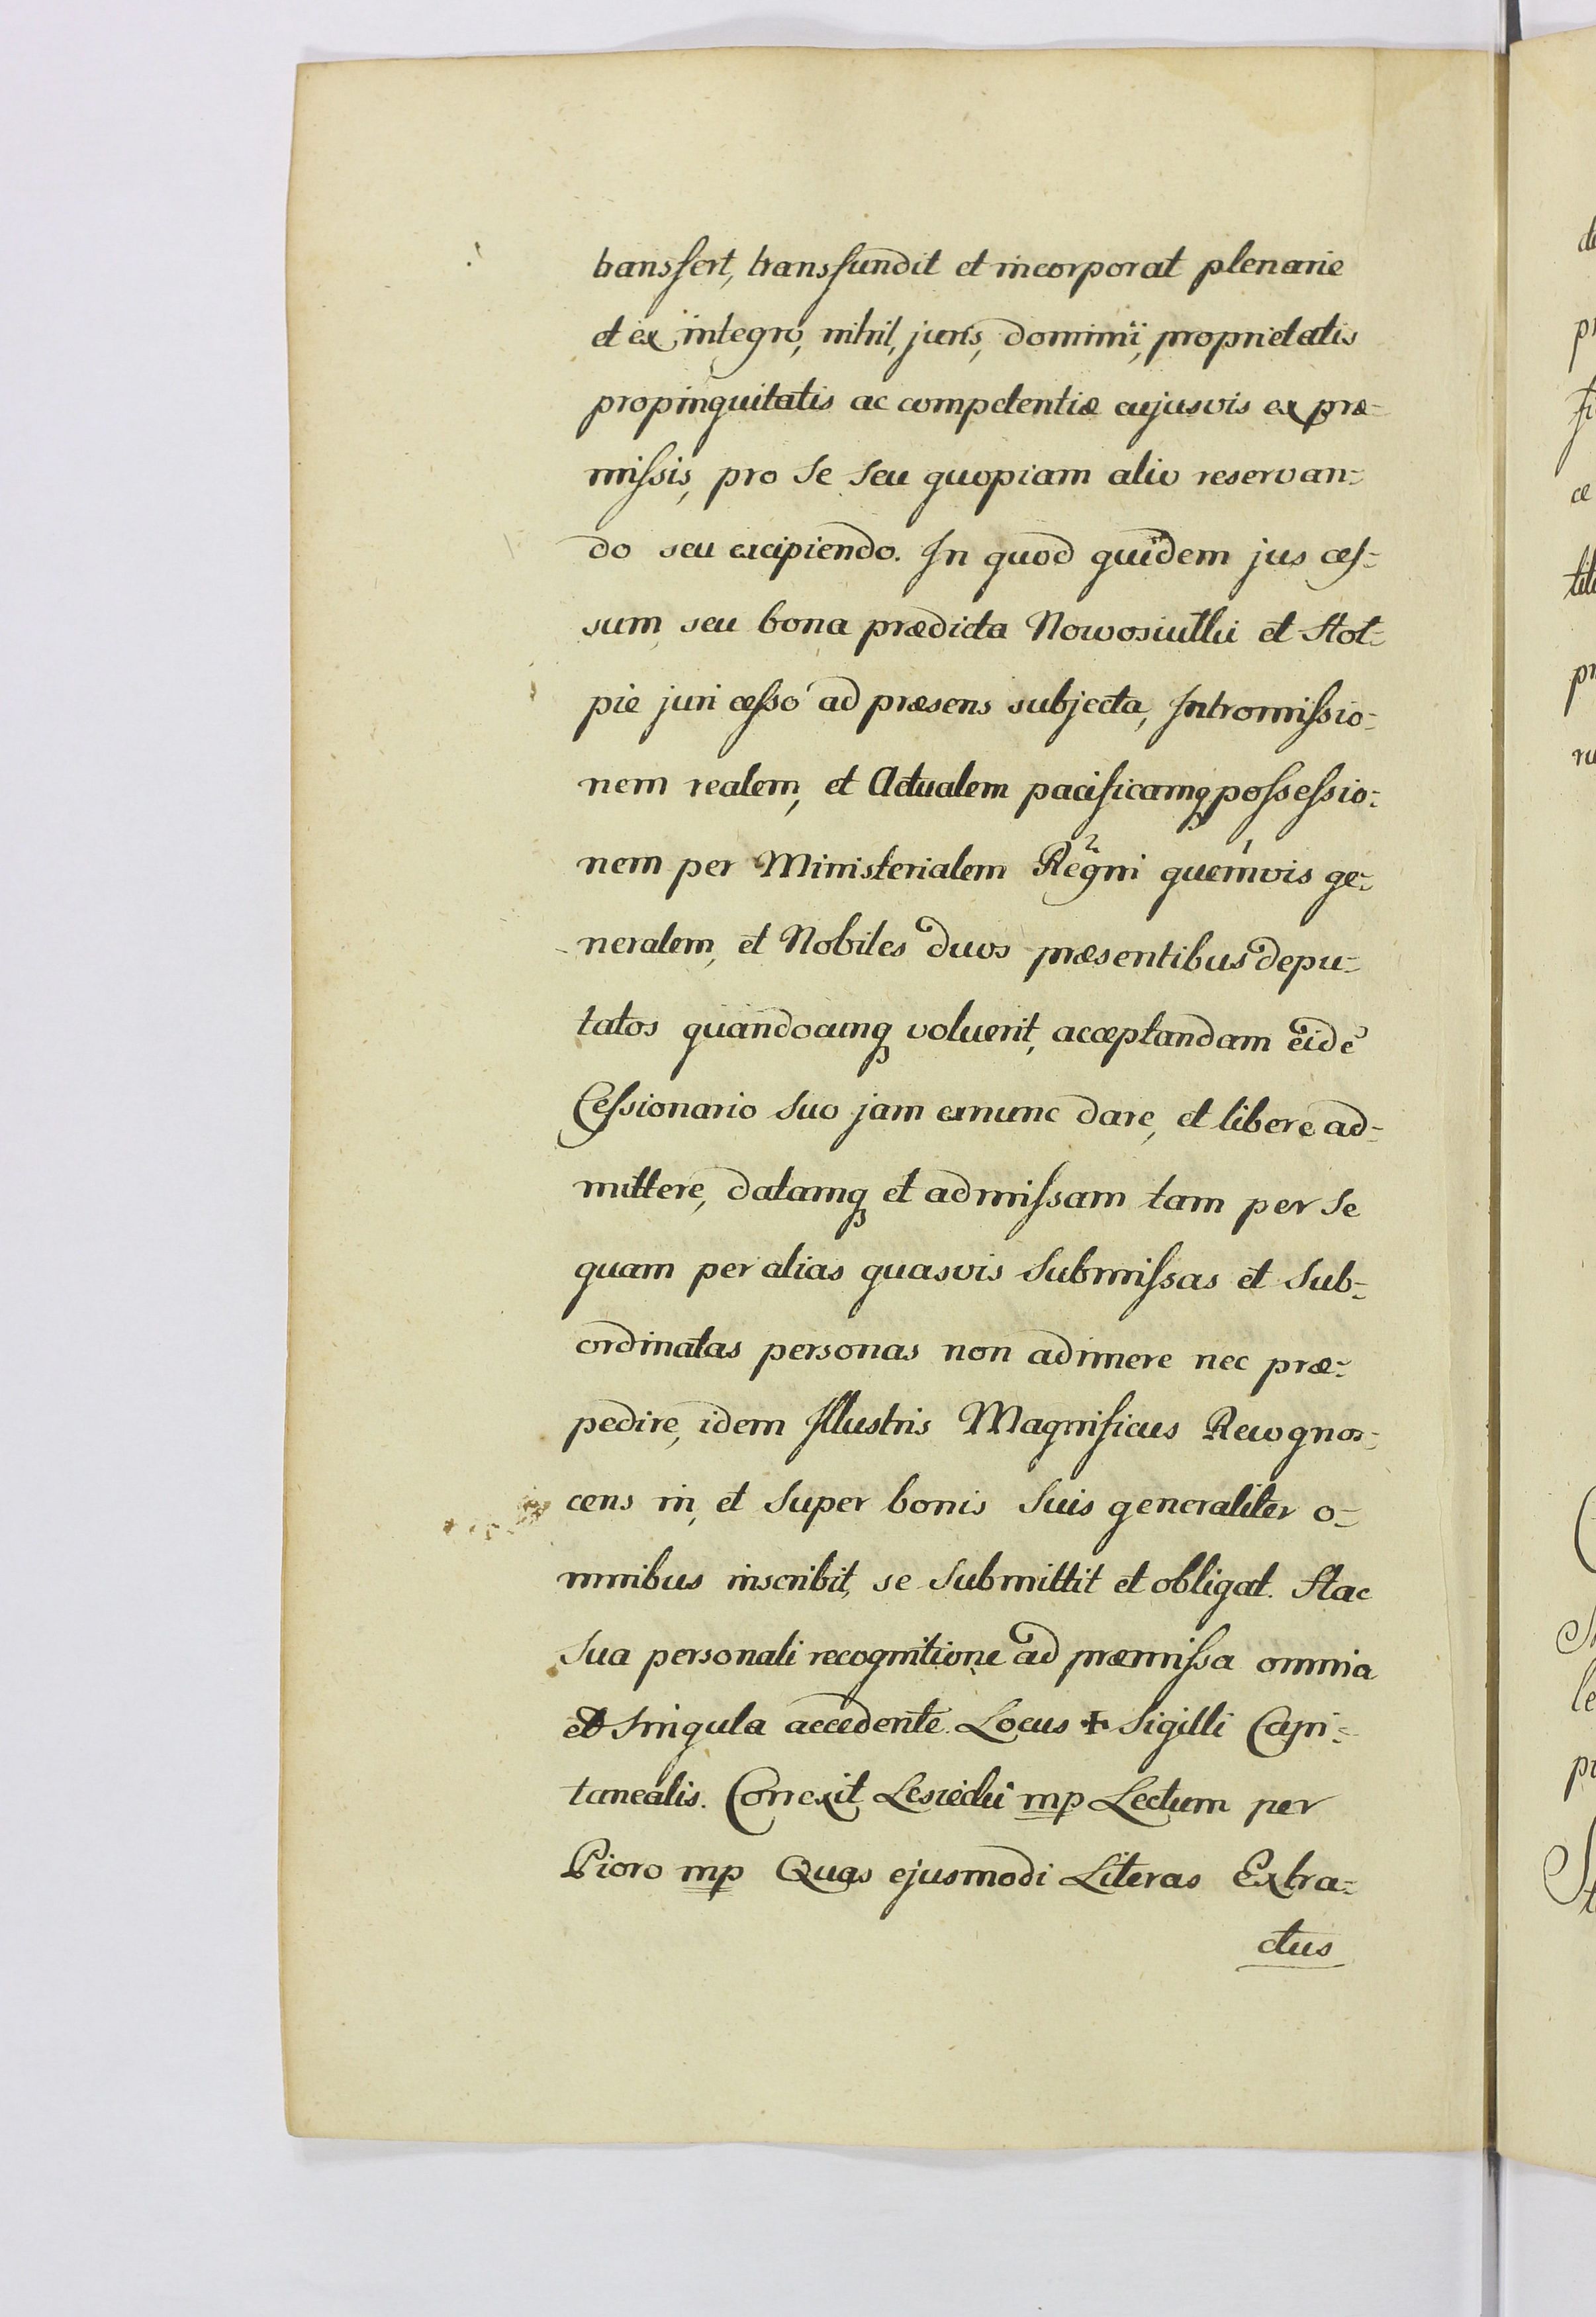 transfert, transfundit et incorporat plenarie
et ex integro, nihil, juris, dominii, proprietatis
propinquitatis ac competentiæ cujusvis ex præ=
missis, pro se seu quopiam alio reservan=
do seu excipiendo. In quod quidem jus ces=
sum seu bona prædicta Nowosiułki et Hoł=
pie juri cesso ad præsens subjecta, Intromissio=
nem realem, et Actualem pacificamq possessio=
nem per Ministerialem Regni quemvis ge=
neralem, et Nobiles duos præsentibus depu=
tatos quandocunq voluerit, acceptandam eidē
Cessionario suo jam exnunc dare, et libere ad=
mittere, datamq et admissam tam per se
quam per alias quasvis submissas et sub=
ordinatas personas non adimere nec præ=
pedire, idem Illustris Magnificus Recognos=
cens in, et super bonis suis generaliter o=
mnibus inscribit, se submittit et obligat. Hac
sua personali recognitione ad præmissa omnia
et singula accedente. Locus ✝ Sigilli Capi=
tanealis. Correxit Lesiecki mp Lectum per
Pioro mp Quas ejusmodi Literas Extra=
ctus